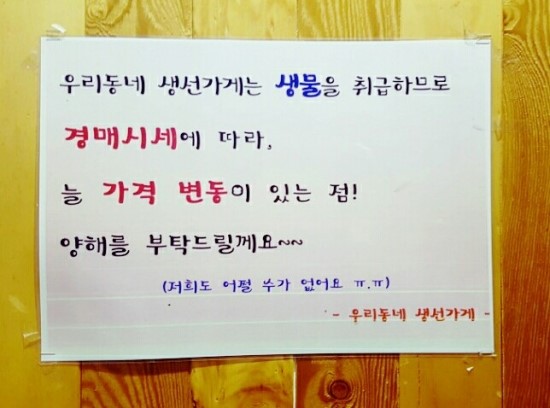 우리동네 생선가게는 생물을 취급하므로
경매시세에 따라,
늘 가격 변동이 있는 점!
양해를 부탁드릴께요~~
(저희도 어쩔 수가 없어요 ㅠ.ㅠ)
- 우리동네 생선가게 -